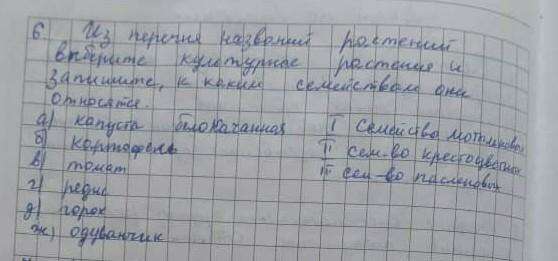 6. Из перечня названий растений
выберите культурные растения и
запишите, к каким семействам они
относятся.
а) капуста белокачанная I Семейство мотыльковых
б) картофель II сем-во крестоцветных
в) томат III сем-во пасленовых
г) редис
д) горох
ж) одуванчик